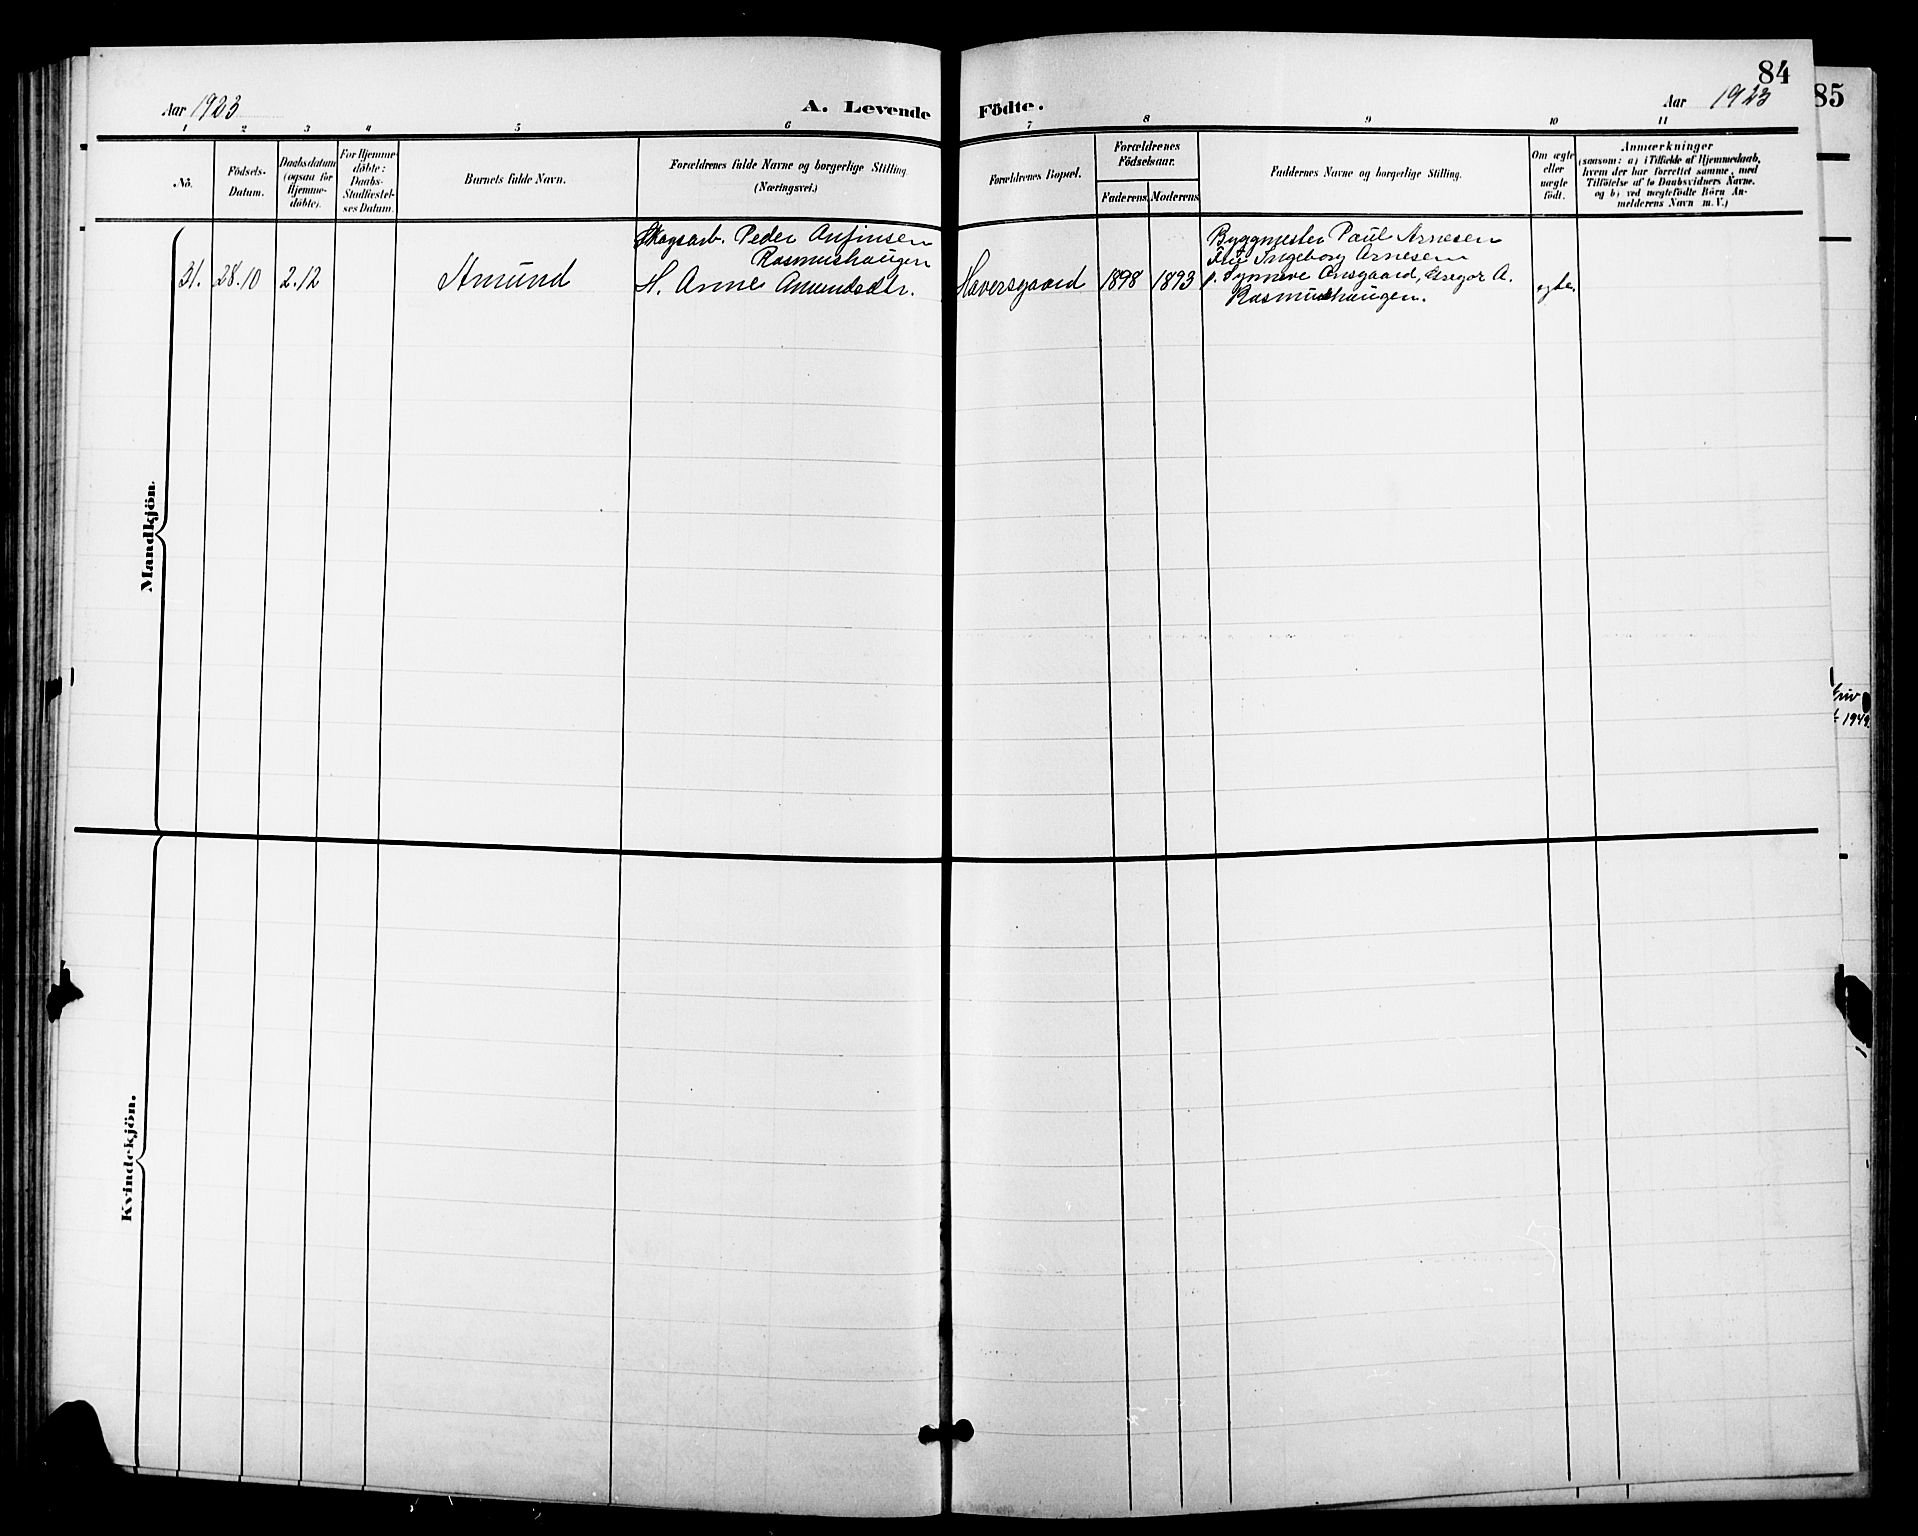 84
85
Aar 1923
A. Levende Födte.
Aar 1923
1 2 3 4 5 6 7 8 9 10 11
No.
Födsels-
Datum.
Daabsdatum
(ogsaa for
Hjemme-
döbte).
For Hjemme-
döbte:
Daabs-
Stadfæstel-
ses Datum.
Barnets fulde Navn.
Forældrenes fulde Navne og borgerlige Stilling
(Næringsvei.)
Forældrenes Bopæl.
Forældrenes
Födselsaar.
Faderens.
Moderens
Faddernes Navne og borgerlige Stilling.
Om ægte
eller
uægte
født.
Anmærkninger
(saasom: a) i Tilfælde af Hjemmedaab,
hvem der har forrettet samme, med
Tilföielse af to Daabsvidners Navne.
og b) ved uægtefödte Börn An-
melderens Navn m. V.)
Mandkjön.
31.
28.10
2.12
Amund
Skogsarb. Peder Anfinsen
Rasmushaugen
H. Anne Amundsdtr.
Haversgaard
1898
1893
Byggmester Paul Arnesen
Fru Ingeborg Arnesen
p. Synneve Onsgaard, Gregor A.
Rasmushaugen.
egte.
Kvindekjön.
1949